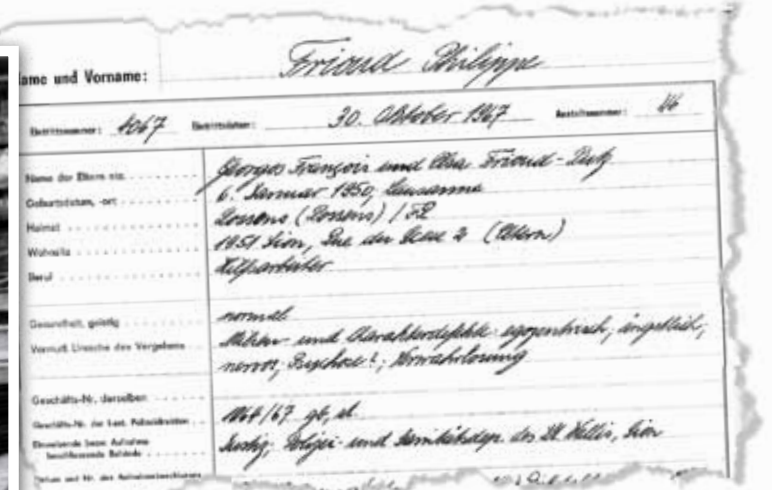 ame und Vorname: Frioud Philippe
Eintrittsnummer: 4067 Eintrittsdatum: 30. Oktober 1967 Anstaltsnummer: 46
Name der Eltern etc. Georges François und Elsa Frioud-
Geburtsdatum, -ort 6. Januar 1950, Lausanne
Heimat (Lossens) / FR
Wohnsitz 1951 Sion, Rue de 2 (Eltern)
Beruf Hilfsarbeiter
Gesundheit, geistig normal
Vermutl. Ursache des Vergehens Milieu- und Charakterdefekte: egozentrisch, ängstlich,
nervös, Psychose?, Verwahrlosung
Geschäfts-Nr. derselben
Geschäfts-Nr. der kant. Polizeidirektion 1164/67
Einweisende bezw. Aufnahme Justiz, Polizei- und Sanitätsdep. des Kt. Wallis, Sion
beschliessende Behörde
Datum und Nr. des Aufnahmebeschlusses